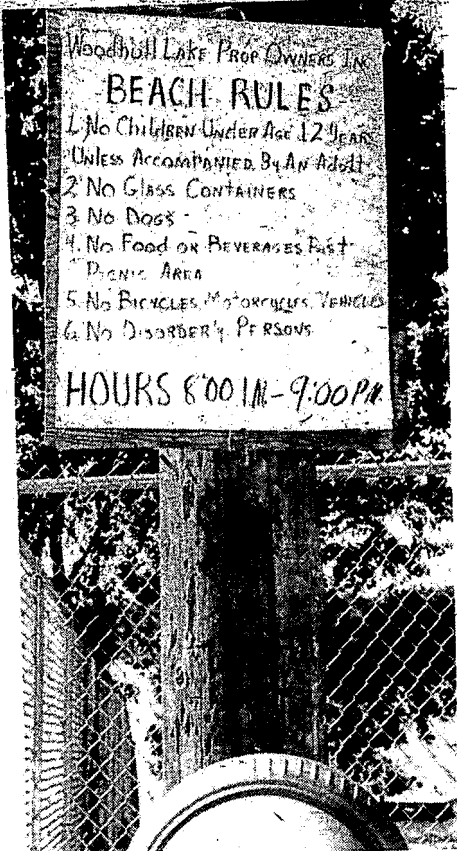 Woodhull Lake Prop Owners In
BEACH RULES
1. No Children Under Age 12 Year
Unless Accompanied By An Adult
2 No Glass Containers
3 No Dogs
4. No Food or Beverages Past
Picnic Area
5. No Bicycles, Motorcycles, Vehicles
6. No Disorder'y Persons
HOURS 8:00 AM-9:00 PM